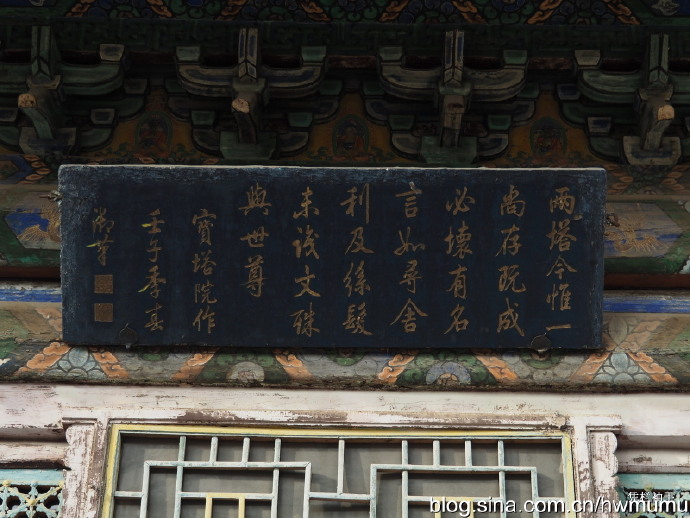 兩塔今惟一
尚存既成
必壞有名
言如尋舍
利及絲髮
未說文殊
與世尊
寶塔院作
壬子季春
御筆
blog.sina.com.cn/hwmumu